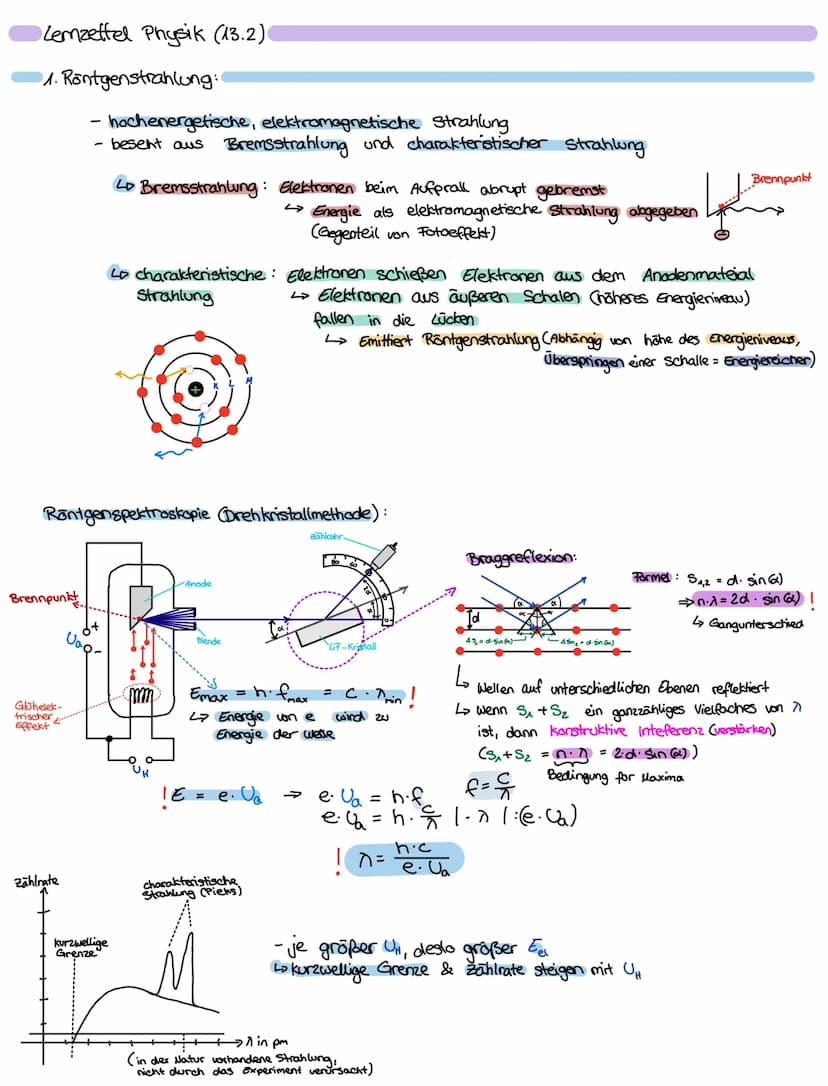 Lernzettel Physik (13.2)
1. Röntgenstrahlung:
- hochenergetische, elektromagnetische Strahlung
- beseht aus Bremsstrahlung und charakteristischer Strahlung
↳ Bremsstrahlung: Elektronen beim Aufprall abrupt gebremst
→ Energie als elektromagnetische Strahlung abgegeben
(Gegenteil von Fotoeffekt)
Brennpunkt
↳ charakteristische: Elektronen schießen Elektronen aus dem Anodenmaterial
Strahlung → Elektronen aus äußeren Schalen (höheres Energieniveau)
fallen in die Lücken
↳ Emittiert Röntgenstrahlung (Abhängig von höhe des Energieniveaus,
Überspringen einer Schalle = Energiereicher)
+ K L M
Röntgenspektroskopie (Drehkristallmethode):
Zählrohr
Anode
Brennpunkt
Ua
+
-
Blende
α
LiF-Kristall
Glühelek-
trischer
Effekt
UH
Emax = h · fmax = c · λmin !
↳ Energie von e wird zu
Energie der Welle
Braggreflexion:
d
α α
ΔS1 = d·sin(α)
ΔS2 = d·sin(α)
Formel: S1,2 = d · sin(α)
⇒ n·λ = 2d · sin(α) !
↳ Gangunterschied
↳ Wellen auf unterschiedlichen Ebenen reflektiert
↳ wenn S1 + S2 ein ganzzähliges Vielfaches von λ
ist, dann konstruktive Inteferenz (verstärken)
(S1 + S2 = n · λ = 2·d · sin(α))
Bedingung für Maxima
! E = e · Ua → e · Ua = h · f f = c/λ
e · Ua = h · c/λ | · λ | :(e · Ua)
! λ = h·c / e·Ua
Zählrate
charakteristische
Strahlung (Pieks)
kurzwellige
Grenze
λ in pm
(in der Natur vorhandene Strahlung,
nicht durch das Experiment verursacht)
- je größer UH, desto größer Eel
↳ kurzwellige Grenze & Zählrate steigen mit UH